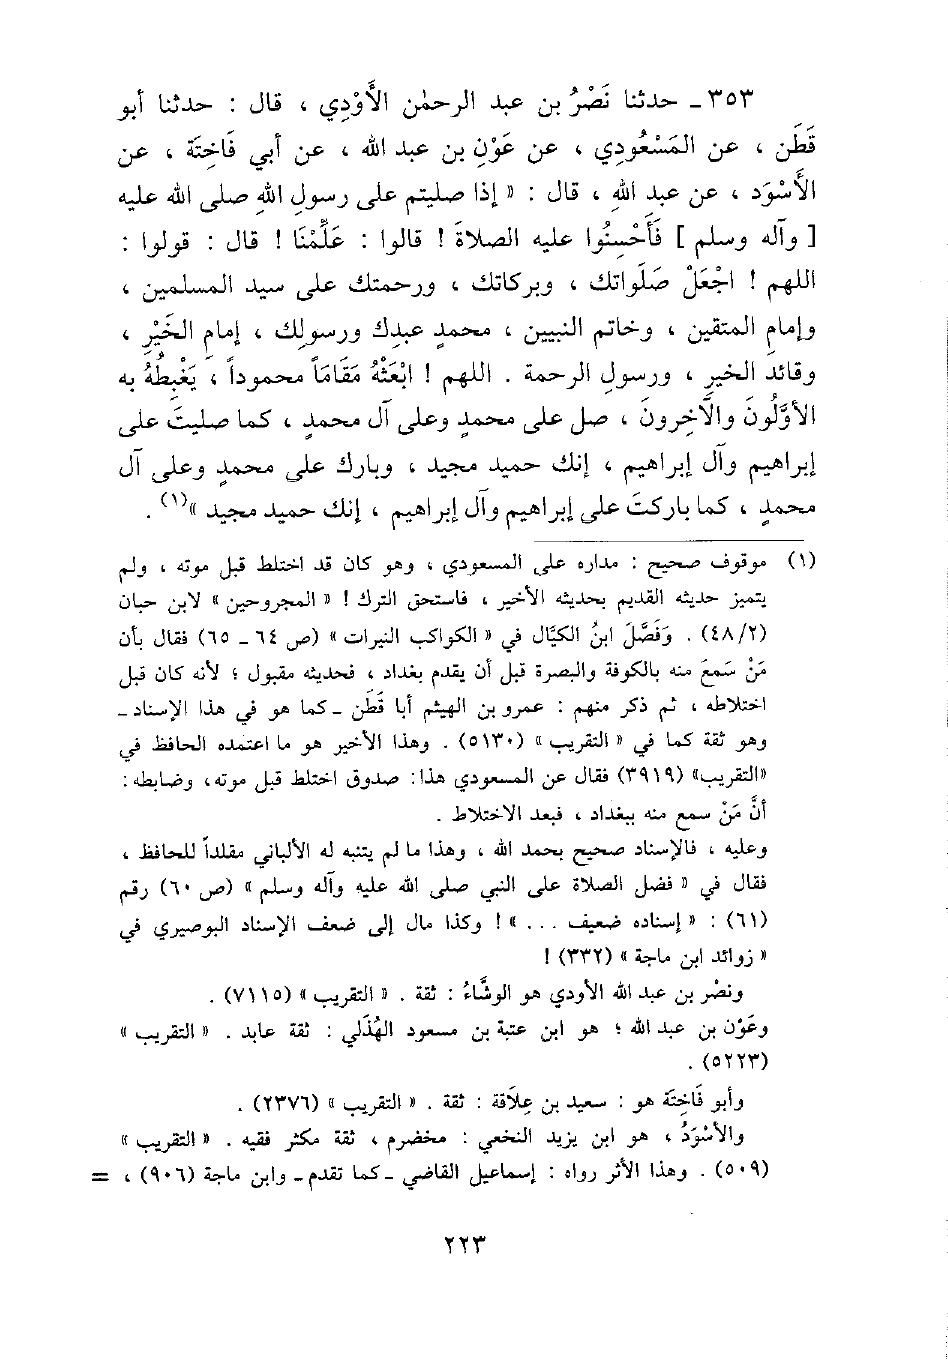 ٣٥٣ـ حدثنا نَصْرُ بن عبد الرحمٰن الأَوْدِي ، قال : حدثنا أبو
قَطَن ، عن المَسْعُودِي ، عن عَوْنِ بن عبد الله ، عن أبي فَاخِتَة ، عن
الأَسْوَد ، عن عبد اللهِ ، قال : « إذا صليتم على رسولِ اللهِ صلى الله عليه
[ وآله وسلم ] فَأَحْسِنُوا عليه الصلاةَ ! قالوا : عَلِّمْنَا ! قال : قولوا :
اللهم ! اجْعَلْ صَلَواتك ، وبركاتك ، ورحمتك على سيد المسلمين ،
وإمام المتقين ، وخاتم النبيين ، محمدٍ عبدِك ورسولِك ، إمامِ الخَيْرِ ،
وقائد الخيرِ ، ورسولِ الرحمة . اللهم ! ابْعَثْهُ مَقَامَاً محموداً ، يَغْبِطُهُ به
الأوَّلُونَ والآخِرونَ ، صل على محمدٍ وعلى آل محمدٍ ، كما صليتَ على
إبراهيم وآل إبراهيم ، إنك حميد مجيد ، وبارك على محمدٍ وعلى آل
محمدٍ ، كما باركتَ على إبراهيم وآل إبراهيم ، إنك حميد مجيد »(١) .
(١) موقوف صحيح : مداره على المسعودي ، وهو كان قد اختلط قبل موته ، ولم
يتميز حديثه القديم بحديثه الأخير ، فاستحق الترك ! « المجروحين » لابن حبان
(٤٨/٢) . وَفَصَّلَ ابنُ الكيَّال في « الكواكب النيرات » (ص ٦٤ ـ ٦٥) فقال بأن
مَنْ سَمعَ منه بالكوفة والبصرة قبل أن يقدم بغداد ، فحديثه مقبول ؛ لأنه كان قبل
اختلاطه ، ثم ذكر منهم : عمرو بن الهيثم أبا قَطَن ـ كما هو في هذا الإسناد ـ
وهو ثقة كما في « التقريب » (٥١٣٠) . وهذا الأخير هو ما اعتمده الحافظ في
«التقريب» (٣٩١٩) فقال عن المسعودي هذا: صدوق اختلط قبل موته، وضابطه:
أنَّ مَنْ سمع منه ببغداد ، فبعد الاختلاط .
وعليه ، فالإسناد صحيح بحمد الله ، وهذا ما لم يتنبه له الألباني مقلداً للحافظ ،
فقال في « فضل الصلاة على النبي صلى الله عليه وآله وسلم » (ص ٦٠) رقم
(٦١) : « إسناده ضعيف ... » ! وكذا مال إلى ضعف الإسناد البوصيري في
« زوائد ابن ماجة » (٣٣٢) !
ونصْر بن عبد الله الأودي هو الوشَّاءُ : ثقة . « التقريب » (٧١١٥) .
وعَوْن بن عبد الله ؛ هو ابن عتبة بن مسعود الهُذَلي : ثقة عابد . « التقريب »
(٥٢٢٣) .
وأبو فَاخِتَة هو : سعيد بن عِلاَقة : ثقة . « التقريب » (٢٣٧٦) .
والأسْوَدُ ، هو ابن يزيد النخعي : مخضرم ، ثقة مكثر فقيه . « التقريب »
(٥٠٩) . وهذا الأثر رواه : إسماعيل القاضي ـ كما تقدم ـ وابن ماجة (٩٠٦) ، =
٢٢٣